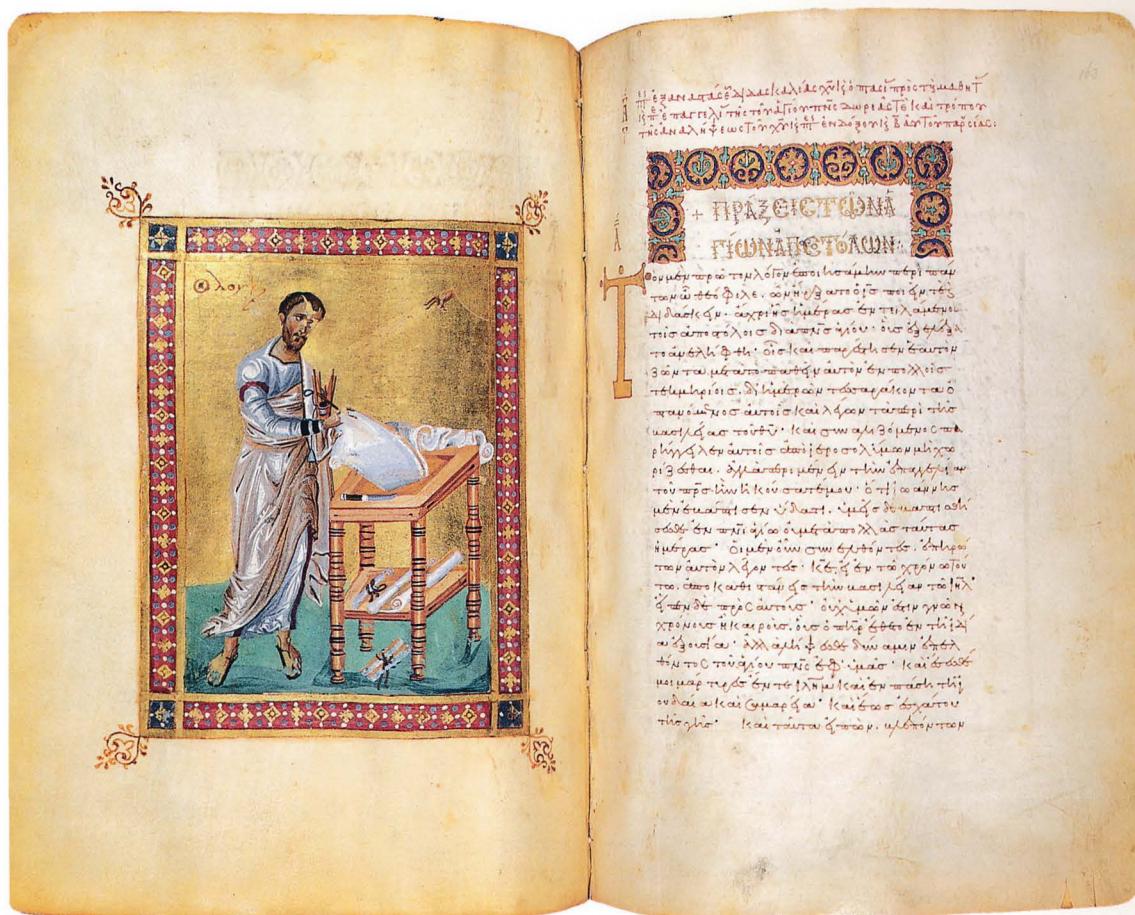 τῆς ἀναλήψεως τοῦ χυ
+ ΠΡΑΞΕΙΣ ΤΩΝ Α
ΓΙΩΝ ΑΠΟΣΤΟΛΩΝ:
Ὁ λουκ
Τὸν μὲν πρῶτον λόγον ἐποιησάμην περὶ πάν
των ὦ θεόφιλε. ὧν ἤρξατο ὁ ἰς ποιεῖν τε κ
διδάσκειν. ἄχρι ἧς ἡμέρας ἐντειλάμενος
τοῖς ἀποστόλοις διὰ πνς ἁγίου οὓς ἐξελέξα
το ἀνελήφθη. οἷς καὶ παρέστησεν ἑαυτὸν
ζῶντα μετὰ τὸ παθεῖν αὐτὸν ἐν πολλοῖς
τεκμηρίοις. δι ἡμερῶν τεσσαράκοντα ὀ
πτανόμενος αὐτοῖς καὶ λέγων τὰ περὶ τῆς
βασιλείας τοῦ θυ. καὶ συναλιζόμενος πα
ρήγγειλεν αὐτοῖς ἀπὸ ἱεροσολύμων μὴ χω
ρίζεσθαι. ἀλλὰ περιμένειν τὴν ἐπαγγελίαν
τοῦ πρς ἣν ἠκούσατέ μου. ὅτι ἰωάννης
μὲν ἐβάπτισεν ὕδατι. ὑμεῖς δὲ βαπτισθή
σεσθε ἐν πνι ἁγίω οὐ μετὰ πολλὰς ταύτας
ἡμέρας. Οἱ μὲν οὖν συνελθόντες. ἐπηρώ
των αὐτὸν λέγοντες. κε, εἰ ἐν τῶ χρόνω τού
τω. ἀποκαθιστάνεις τὴν βασιλείαν τῶ ιηλ
εἶπεν δὲ πρὸς αὐτούς. οὐχ ὑμῶν ἐστιν γνῶναι
χρόνους ἢ καιρούς. οὓς ὁ πηρ ἔθετο ἐν τῆ ἰδί
α ἐξουσία. ἀλλὰ λήψεσθε δύναμιν ἐπελ
θόντος τοῦ ἁγίου πνς ἐφ ὑμᾶς. καὶ ἔσεσθέ
μοι μάρτυρες ἔν τε ιλημ καὶ ἐν πάση τῆ ἰ
ουδαία καὶ σαμαρεία καὶ ἕως ἐσχάτου
τῆς γῆς. Καὶ ταῦτα εἰπὼν. βλεπόντων